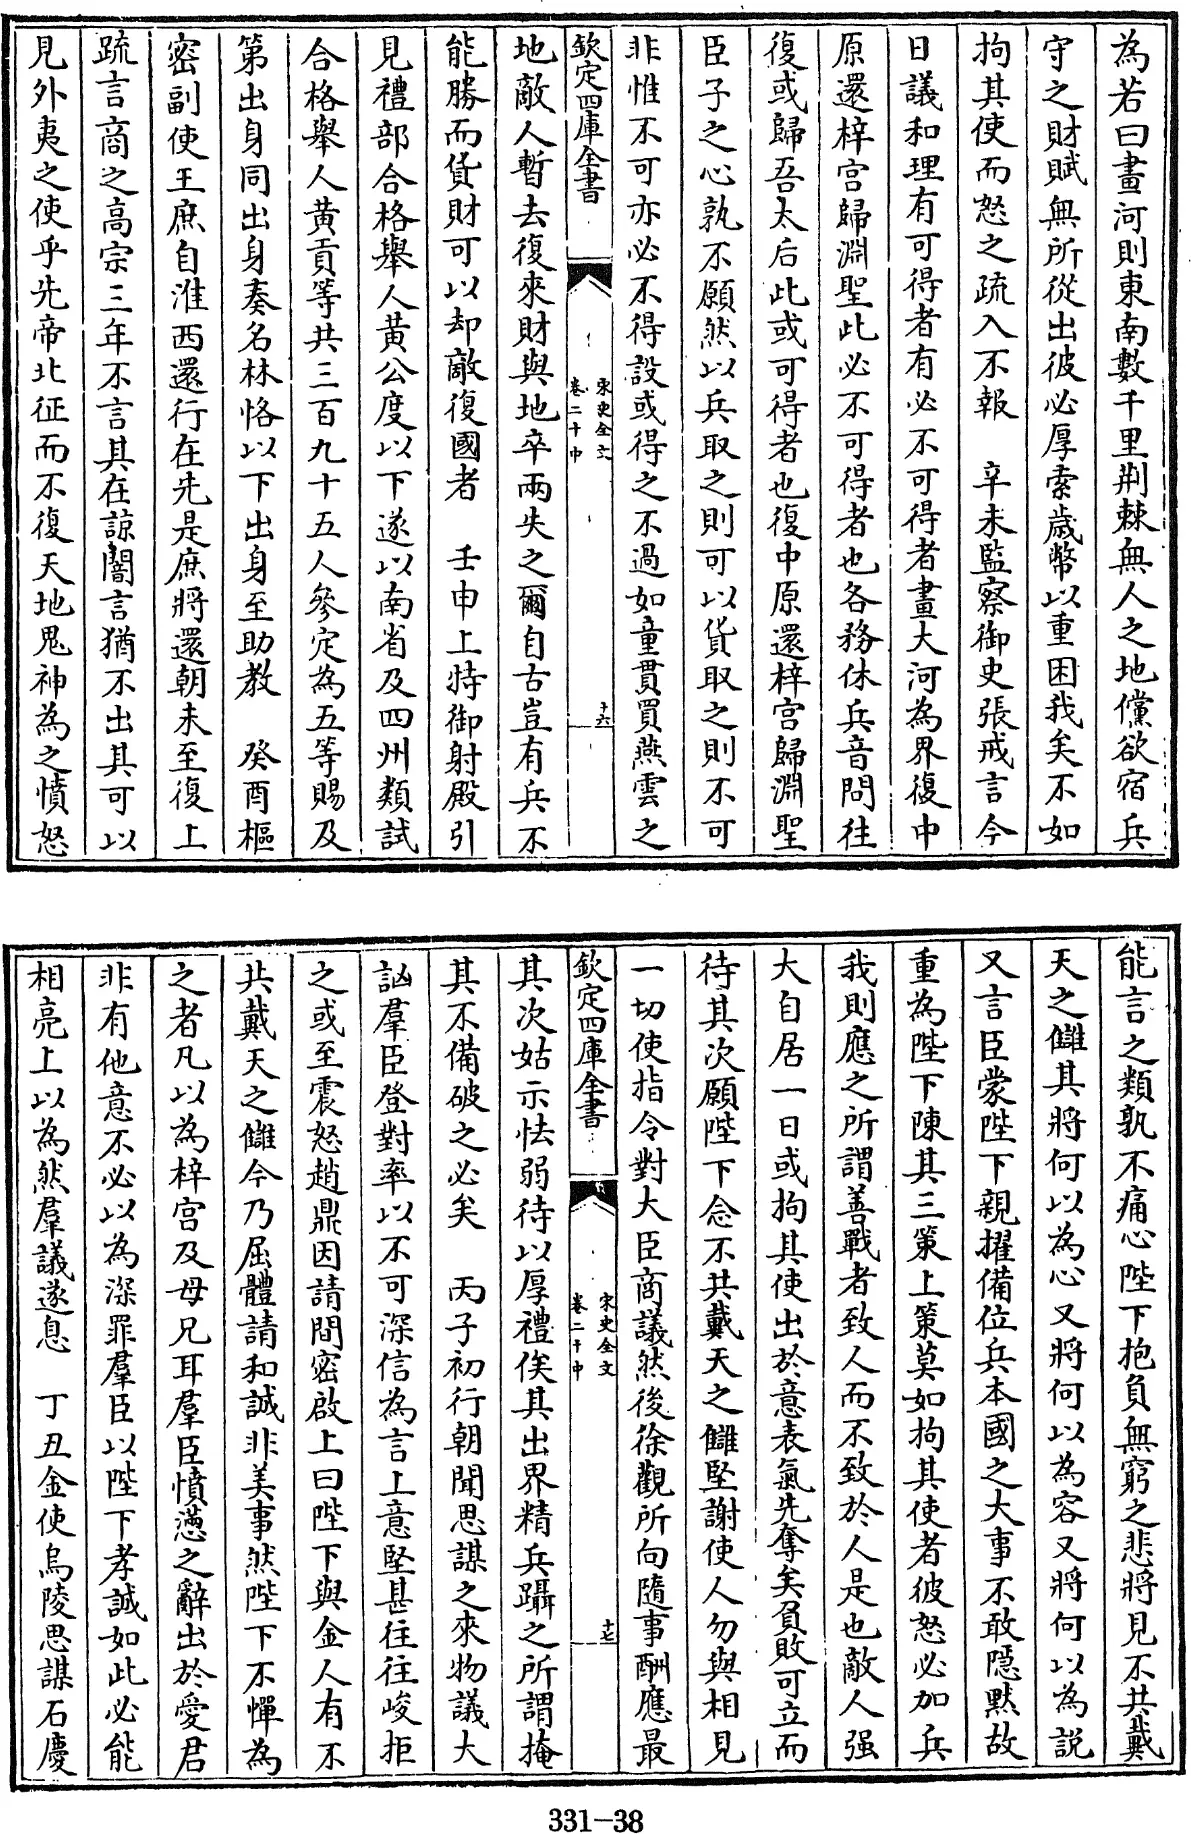 為若曰畫河則東南數千里荆棘無人之地儻欲宿兵
守之財賦無所從出彼必厚索歳幣以重困我矣不如
拘其使而怒之疏入不報　辛未監察御史張戒言今
日議和理有可得者有必不可得者畫大河為界復中
原還梓宮歸淵聖此必不可得者也各務休兵音問往
復或歸吾太后此或可得者也復中原還梓宮歸淵聖
臣子之心孰不願然以兵取之則可以貨取之則不可
非惟不可亦必不得設或得之不過如童貫買燕雲之
欽定四庫全書　宋史全文卷二十中　十六
地敵人暫去復來財與地卒兩失之爾自古豈有兵不
能勝而貨財可以却敵復國者　壬申上特御射殿引
見禮部合格舉人黄公度以下遂以南省及四州類試
合格舉人黄貢等共三百九十五人參定為五等賜及
第出身同出身奏名林恪以下出身至助教　癸酉樞
密副使王庶自淮西還行在先是庶將還朝未至復上
疏言商之高宗三年不言其在諒闇言猶不出其可以
見外夷之使乎先帝北征而不復天地鬼神為之憤怒
能言之類孰不痛心陛下抱負無窮之悲將見不共戴
天之讎其將何以為心又將何以為容又將何以為説
又言臣蒙陛下親擢備位兵本國之大事不敢隠黙故
重為陛下陳其三策上策莫如拘其使者彼怒必加兵
我則應之所謂善戰者致人而不致於人是也敵人强
大自居一日或拘其使出於意表氣先奪矣負敗可立而
待其次願陛下念不共戴天之讎堅謝使人勿與相見
一切使指令對大臣商議然後徐觀所向隨事酬應最
欽定四庫全書　宋史全文卷二十中　十七
其次姑示怯弱待以厚禮俟其出界精兵躡之所謂掩
其不備破之必矣　丙子初行朝聞思謀之來物議大
訩羣臣登對率以不可深信為言上意堅甚往往峻拒
之或至震怒趙鼎因請間密啟上曰陛下與金人有不
共戴天之讎今乃屈體請和誠非美事然陛下不憚為
之者凡以為梓宮及母兄耳羣臣憤懣之辭出於愛君
非有他意不必以為深罪羣臣以陛下孝誠如此必能
相亮上以為然羣議遂息　丁丑金使烏陵思謀石慶
331-38